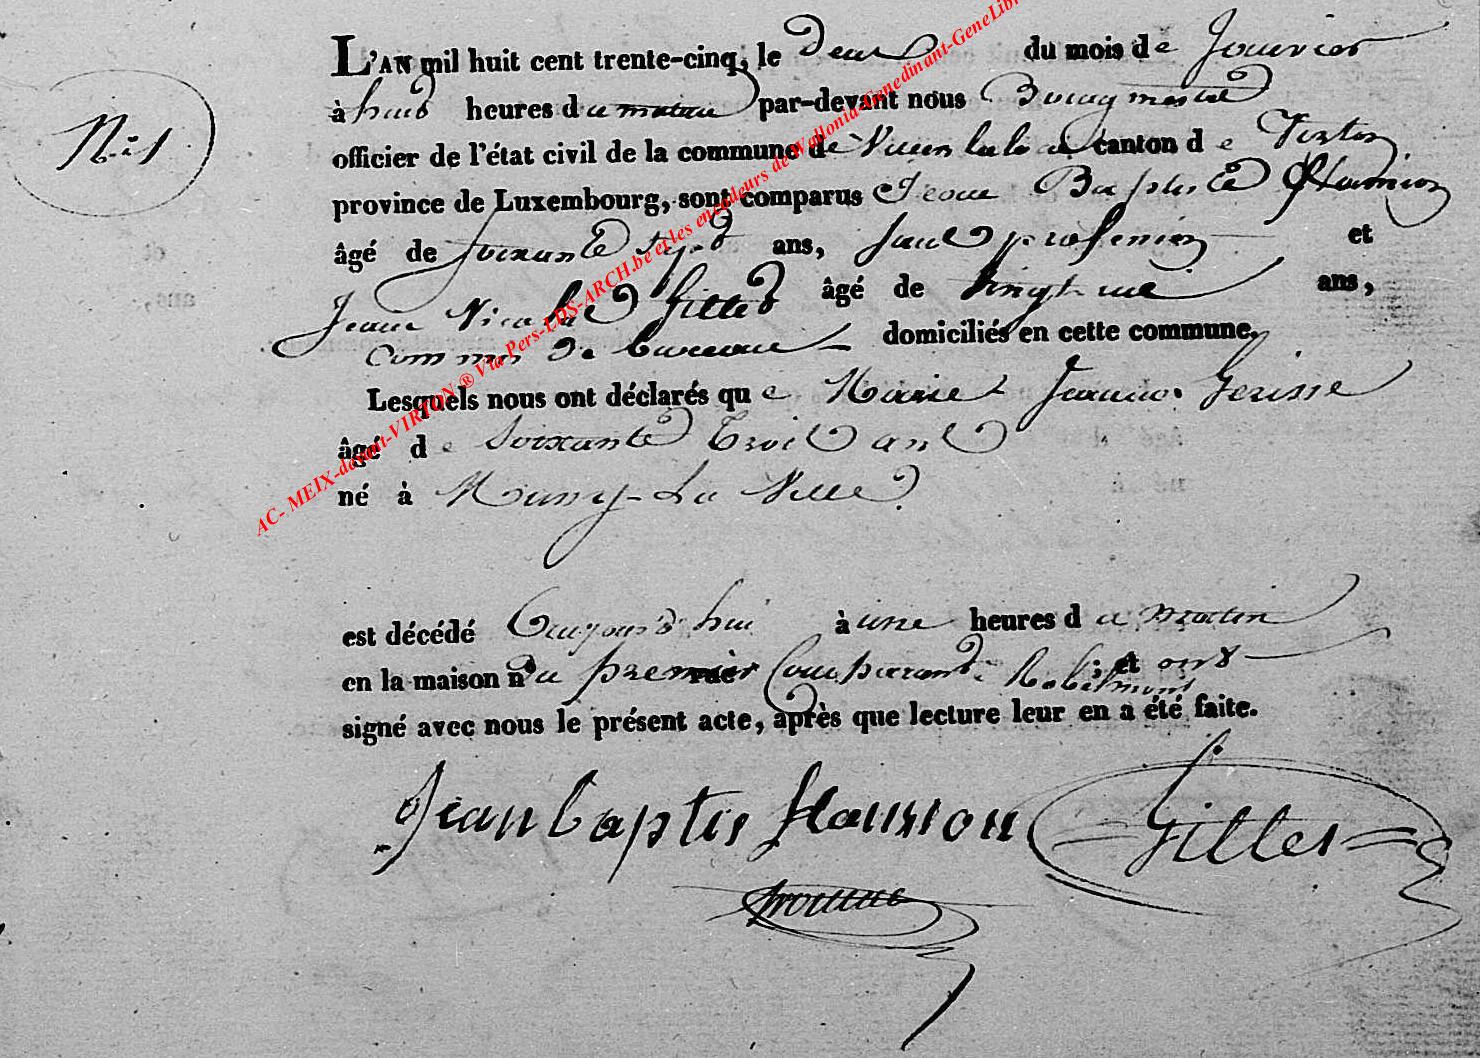 N.° 1
L'AN mil huit cent trente-cinq, le deux du mois de Janvier
à huit heures du matin par-devant nous Bourgmestre
officier de l'état civil de la commune de canton de Virton
province de Luxembourg, sont comparus Jean Baptiste Hansion
âgé de soixante sept ans, sans profession et
Jean Nicolas Gilles âgé de vingt ans,
commis de bureau domiciliés en cette commune.
Lesquels nous ont déclarés que Marie Jeanne Gerisse
âgé de soixante trois ans
né à Mussy-La Ville
est décédé aujourd'hui à une heures du matin
en la maison n° du premier Comparant à Robelmont ; et ont
signé avec nous le présent acte, après que lecture leur en a été faite.
Jean baptis hansion Gilles
AC- MEIX-devant-VIRTON ® Via Pers-LDS-ARCH.be et les encodeurs de Wallonia-Genedinant-GeneLib